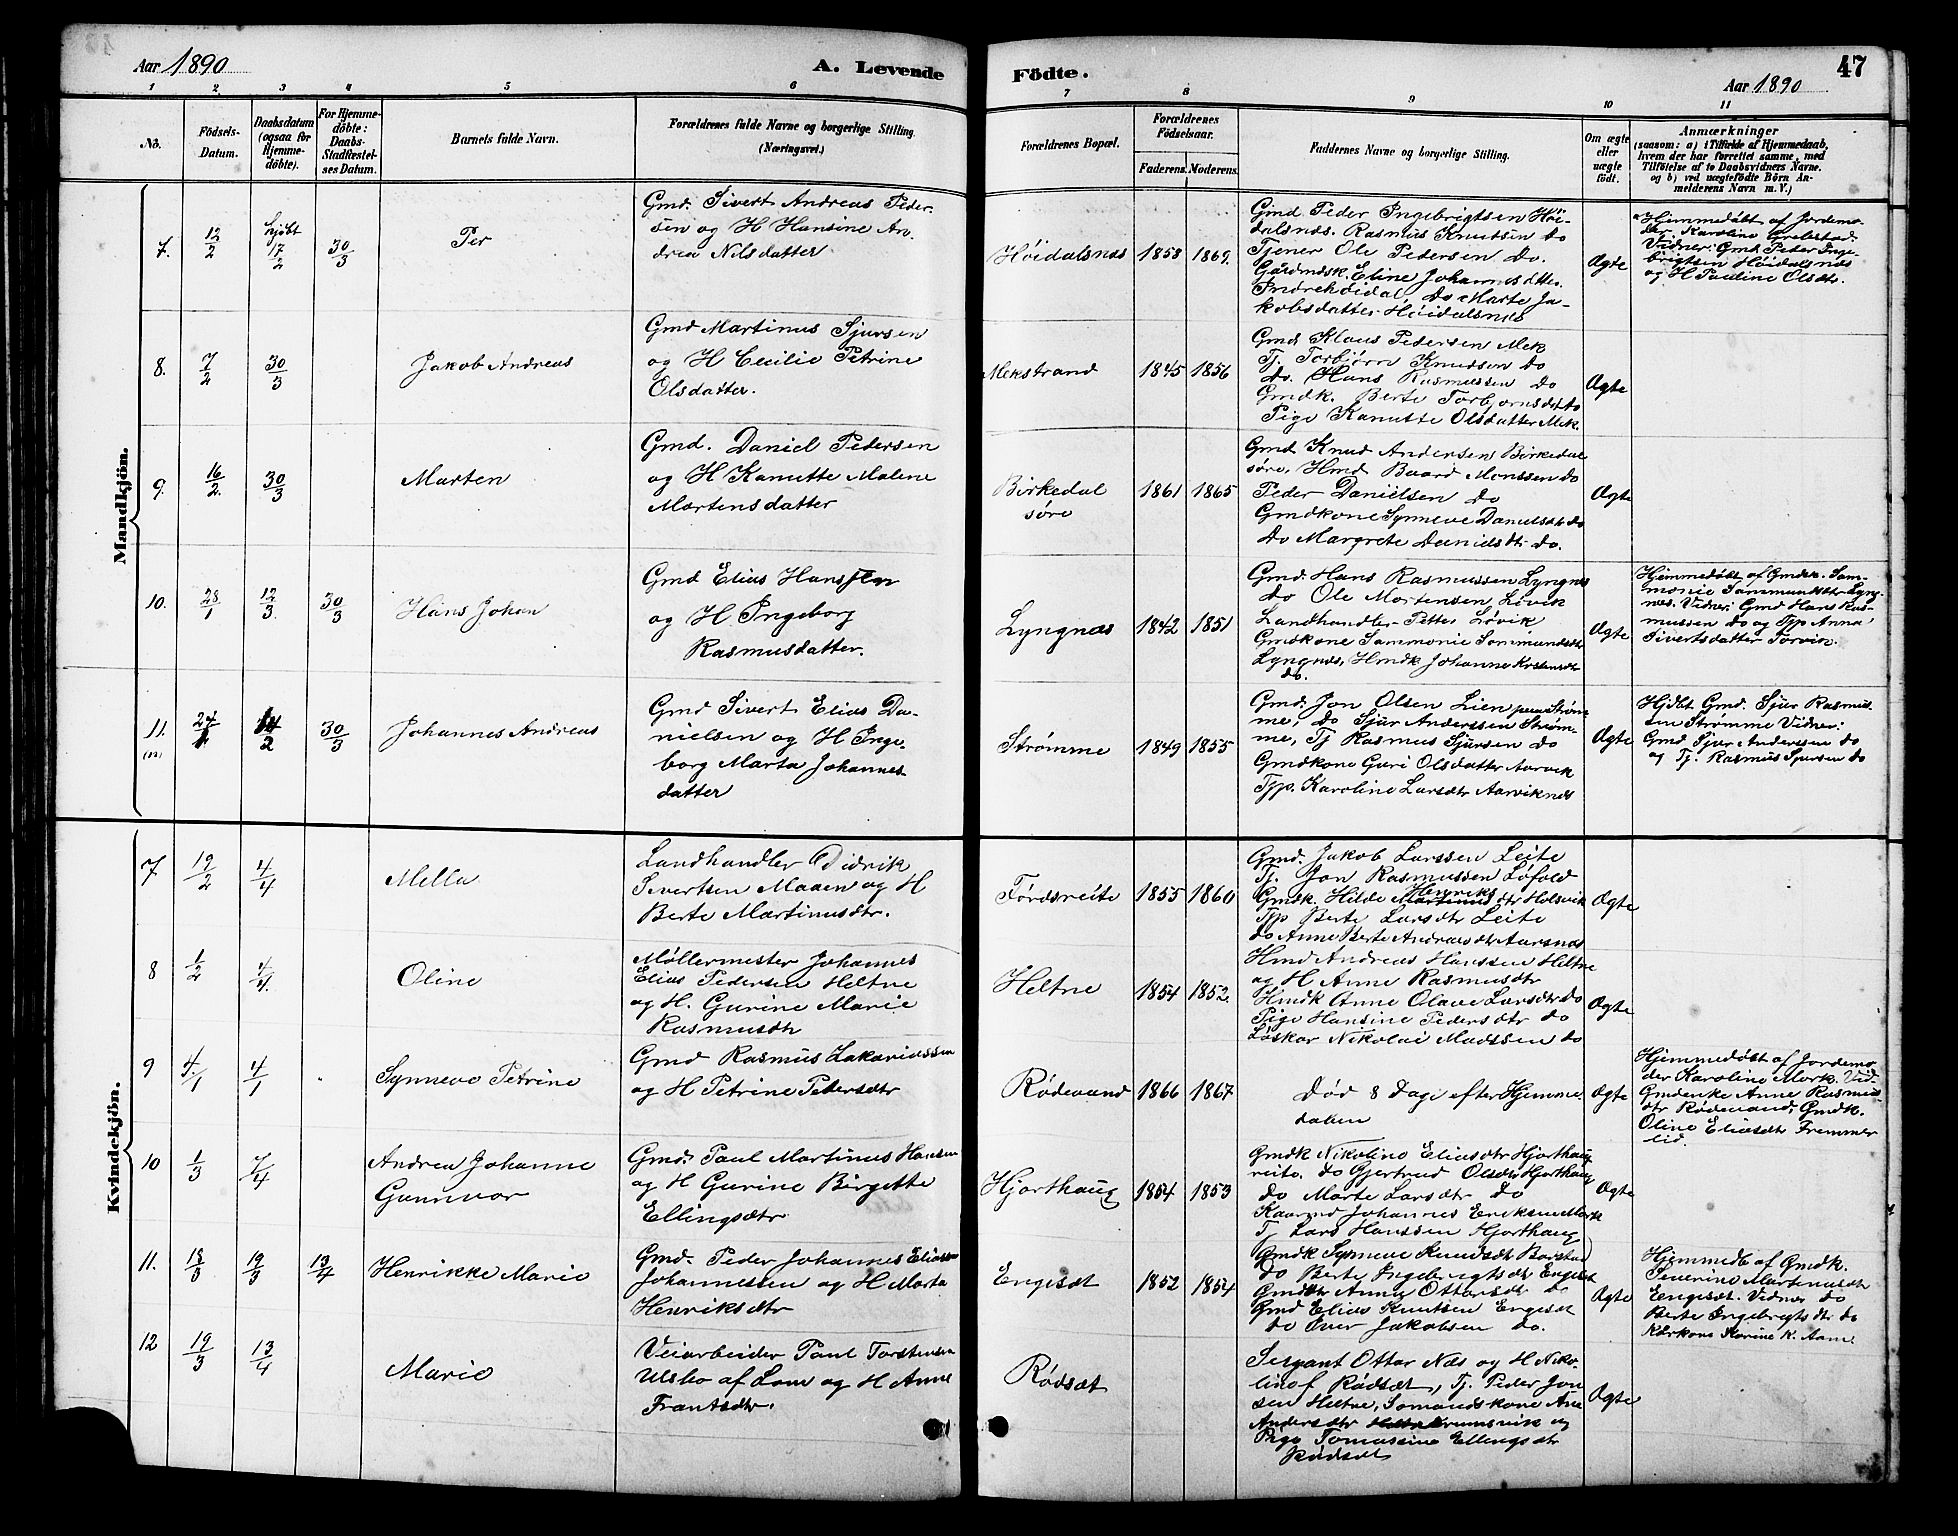 Aar 1890
A. Levende
Födte.
Aar 1890
47
1 2 3 4 5 6 7 8 9 10 11
No.
Födsels-
Datum.
Daabsdatum
(ogsaa for
Hjemme-
döbte).
For Hjemme-
döbte:
Daabs-
Stadfæstel-
ses Datum.
Barnets fulde Navn.
Forældrenes fulde Navne og borgerlige Stilling.
(Næringsvei.)
Forældrenes Bopæl.
Forældrenes
Födselsaar.
Faderens. Moderens.
Faddernes Navne og borgerlige Stilling.
Om ægte
eller
uægte
födt.
Anmærkninger
(saasom: a) i Tilfælde af Hjemmedaab,
hvem der har forrettet samme, med
Tilföielse af to Daabsvidners Navne.
og b) ved uægtefödte Börn An-
melderens Navn m. V.)
Mandkjön.
7.
12/2
hjdbt
17/2
30/3
Per
Gmd. Sivert Andreas Peder-
sen og H Hansine An-
drea Nilsdatter
Höidalsnæs
1858
1869.
Gmd Peder Ingebrigtsen Höi-
dalsnæs. Rasmus Knudsen do
Tjener Ole Pedersen do.
Gårdmdsk. Eline Johannesdtter
Indrehöidal do Marte Ja-
kobsdatter Höidalsnæs
Ægte
Hjemmedøbt af Jordemo-
der Karoline Grebstad.
Vidner: Gmd Peder Inge-
brigtsen Höidalsnæs
og H Pauline Olsdtr.
8.
7/2
30/3
Jakob Andreas
Gmd Martinus Sjursen
og H Cecilie Petrine
Olsdatter.
Mekstrand
1845
1856
Gmd Klaus Pedersen Mek
Tj. Torbjørn Knudsen do
do. Hans Rasmussen do
Gmdk. Berte Torbjørnsdt do
Pige Kanutte Olsdatter Mek.
Ægte
9.
16/2.
30/3
Marten
Gmd. Daniel Pedersen
og H Kanutte Malene
Martensdatter
Birkedal
søre
1861
1865
Gmd Knud Andersen Birkedal
søre, Hmd Baard Monssen do
Peder Danielsen do
Gmdkone Synneve Danielsdt do
do Margrete Danielsdtr do.
Ægte
10.
28/1
12/3
30/3
Hans Johan
Gmd Elias Hanssen
og H Ingeborg
Rasmusdatter.
Lyngnæs
1842
1851
Gmd. Hans Rasmussen Lyngnes
do Ole Mortensen Løvik
Landhandler Petter Løvik
Gmdkone Sammonie Sammundsdtr
Lyngnæs, Hmdk Johanne Kristensdtr
do.
Ægte
Hjemmedøbt af Gmdk. Sam-
monie Sammundsdtr Lyng-
nes. Vidner: Gmd Hans Ras-
mussen do og Tjp Anna
Sivertsdatter Torvik.
11.
30/3
Johannes Andreas
Gmd Sivert Elias Da-
nielsen og H Inge-
borg Marta Johannes-
datter
Strømme
1849
1855
Gmd. Jon Olsen Lien paa Strøm-
me, do Sjur Anderssen Strøm-
me, Tj Rasmus Sjursen do
Gmdkone Guri Olsdatter Aarvik
Tjp. Karoline Larsdtr Aarviknes
Ægte
Hjdbt Gmd. Sjur Rasmus-
sen Strømme Vidner:
Gmd Sjur Anderssen do
og Tj. Rasmus Sjursen do
Kvindekjön.
7
19/2
4/4
Mella
Landhandler Didrik
Sivertsen Maaen og H
Berte Martinusdtr.
Førdsreite
1855
1860
Gmd. Jakob Larssen Leite
Tj. Jon Rasmussen Løfold
Henriks
Gmdk. Hilde Martinusdtr Holsvik
Tjp Berte Larsdtr Leite
do Anne Berte Andreasdtr Aarsnes
Ægte
8
1/2
4/4.
Oline
Møllermester Johannes
Elias Pedersen Heltne
og H. Gurine Marie
Rasmusdtr
Heltne
1854
1852.
Hmd Andreas Hanssen Heltne
og H Anne Rasmusdtr
Hmdk Anne Olave Larsdtr do
Pige Hansine Pedersdtr do
Løskar Nikolai Madssen do
Ægte
9
4/1
4/1
Synneve Petrine
Gmd Rasmus Zakariassen
og H Petrine Petersdtr
Rødevand
1866
1867
Død 8 Dage efter Hjemme
daaben
Ægte
Hjemmedøbt af Jordemo-
der Karoline Mork. Vid-
Gmdenke Anne Rasmus-
dtr Rødevand, Gmdk.
Oline Eliasdtr Fremmer-
lid.
10
1/3
7/4
Andrea Johanne
Gunnvor
Gmd. Paul Martinus Hansen
og H Gurine Birgitte
Ellingsdtr
Hjorthaug
1854
1853
Gmdk Nikoline Eliasdtr Hjorthaug
reite. do Gjertrud Olsdtr Hjorthaug
do Marte Larsdtr do
Kaarmd Johannes Eriksen Mork
Tj Lars Hanssen Hjorthaug
Ægte
11.
18/3
19/3
13/4
Henrikke Marie
Gmd. Peder Johannes Elias
Johannessen og H Marta
Henriksdtr
Engesæt
1852
1854
Gmdk Synneve Knudsdt Barstad
do Berte Ingebrigtsdtr Engeset
Gmddtr Anna Ottarsdtr do
Gmd Elias Knutsen Engesæt
do Iver Jakobsen do.
Ægte
Hjemmedb af Gmdk.
Severine Martinusdtr
Engesæt. Vidner do
Berte Ingebrigtsdtr do
Kårkone Karine K. Aame
12
19/3
13/4
Marie
Veiarbeider Paul Torstensen
Ulsbo af Lom og H Anne
Frantsdtr.
Rødsæt
Sersjant Ottar Næs og H Niko-
line Rødsæt, Tj. Peder Jon
sen Heltne, Sømandskone Ane
Andersdtr
Pige Tomassine Ellingsdtr
Rødsæt
Ægte